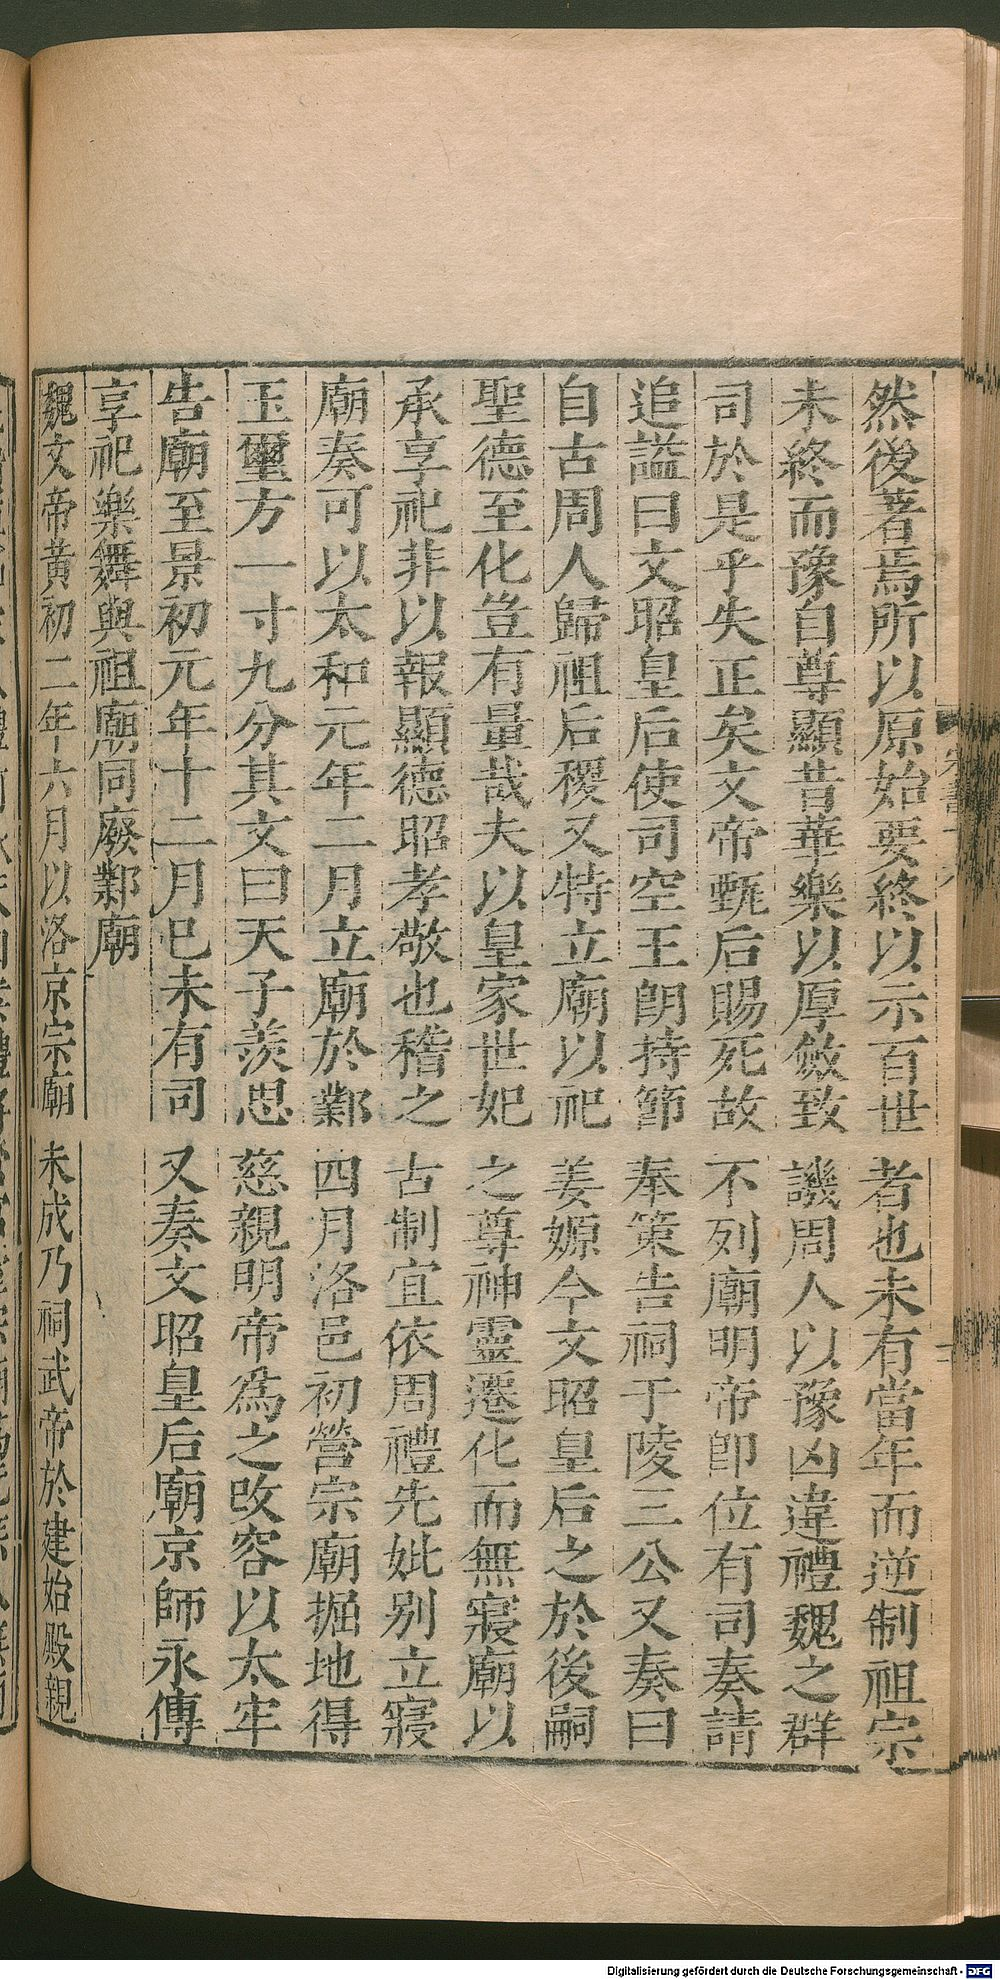 然後著焉所以原始要終以示百世者也未有當年而逆制祖宗
未終而豫自尊顯昔華樂以厚斂致譏周人以豫凶違禮魏之群
司於是乎失正矣文帝甄后賜死故不列廟明帝即位有司奏請
追謚曰文昭皇后使司空王朗持節奉策告祠于陵三公又奏曰
自古周人歸祖后稷又特立廟以祀姜嫄今文昭皇后之於後嗣
聖德至化豈有量哉夫以皇家世妃之尊神靈遷化而無寢廟以
承享祀非以報顯德昭孝敬也稽之古制宜依周禮先妣别立寢
廟奏可以太和元年二月立廟於鄴四月洛邑初營宗廟掘地得
玉璽方一寸九分其文曰天子羨思慈親明帝爲之改容以太牢
告廟至景初元年十二月巳未有司又奏文昭皇后廟京師永傳
享祀樂舞與祖廟同廢鄴廟
魏文帝黃初二年六月以洛京宗廟未成乃祠武帝於建始殿親
Digitalisierung gefördert durch die Deutsche Forschungsgemeinschaft - DFG